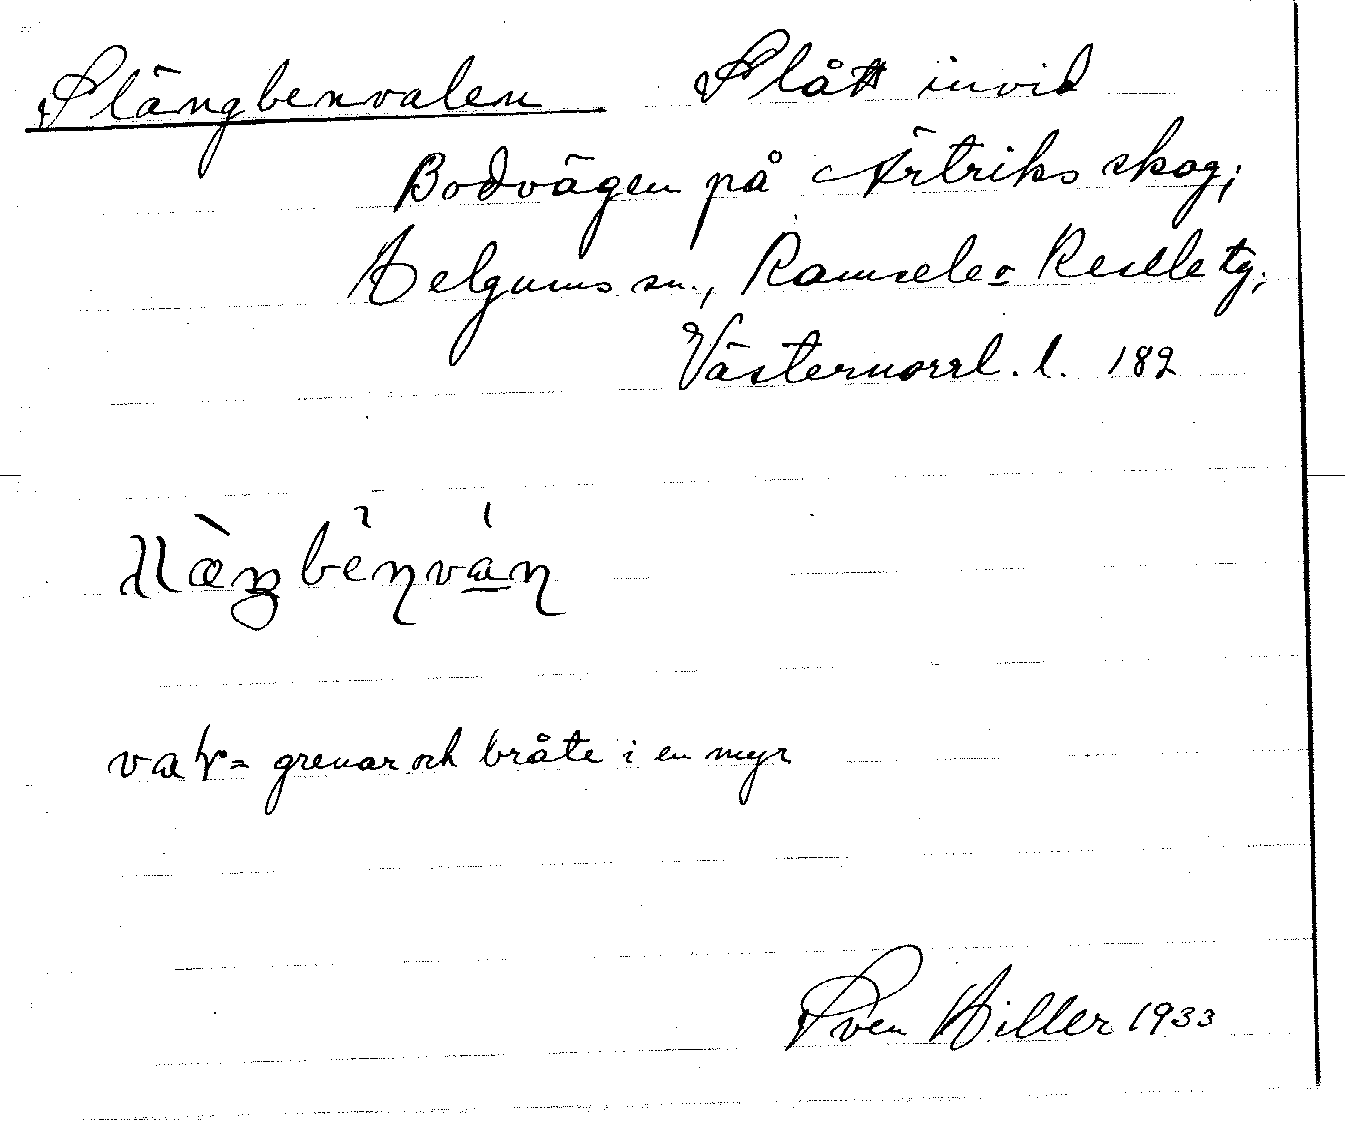 Slängbenvalen Slått invid
Bodvägen på Ärtriks skog;
Helgums sn., Ramsele o Resele tg;
Västernorrl. l. 182
val = grenar och bråte i en myr
Sven Hiller 1933